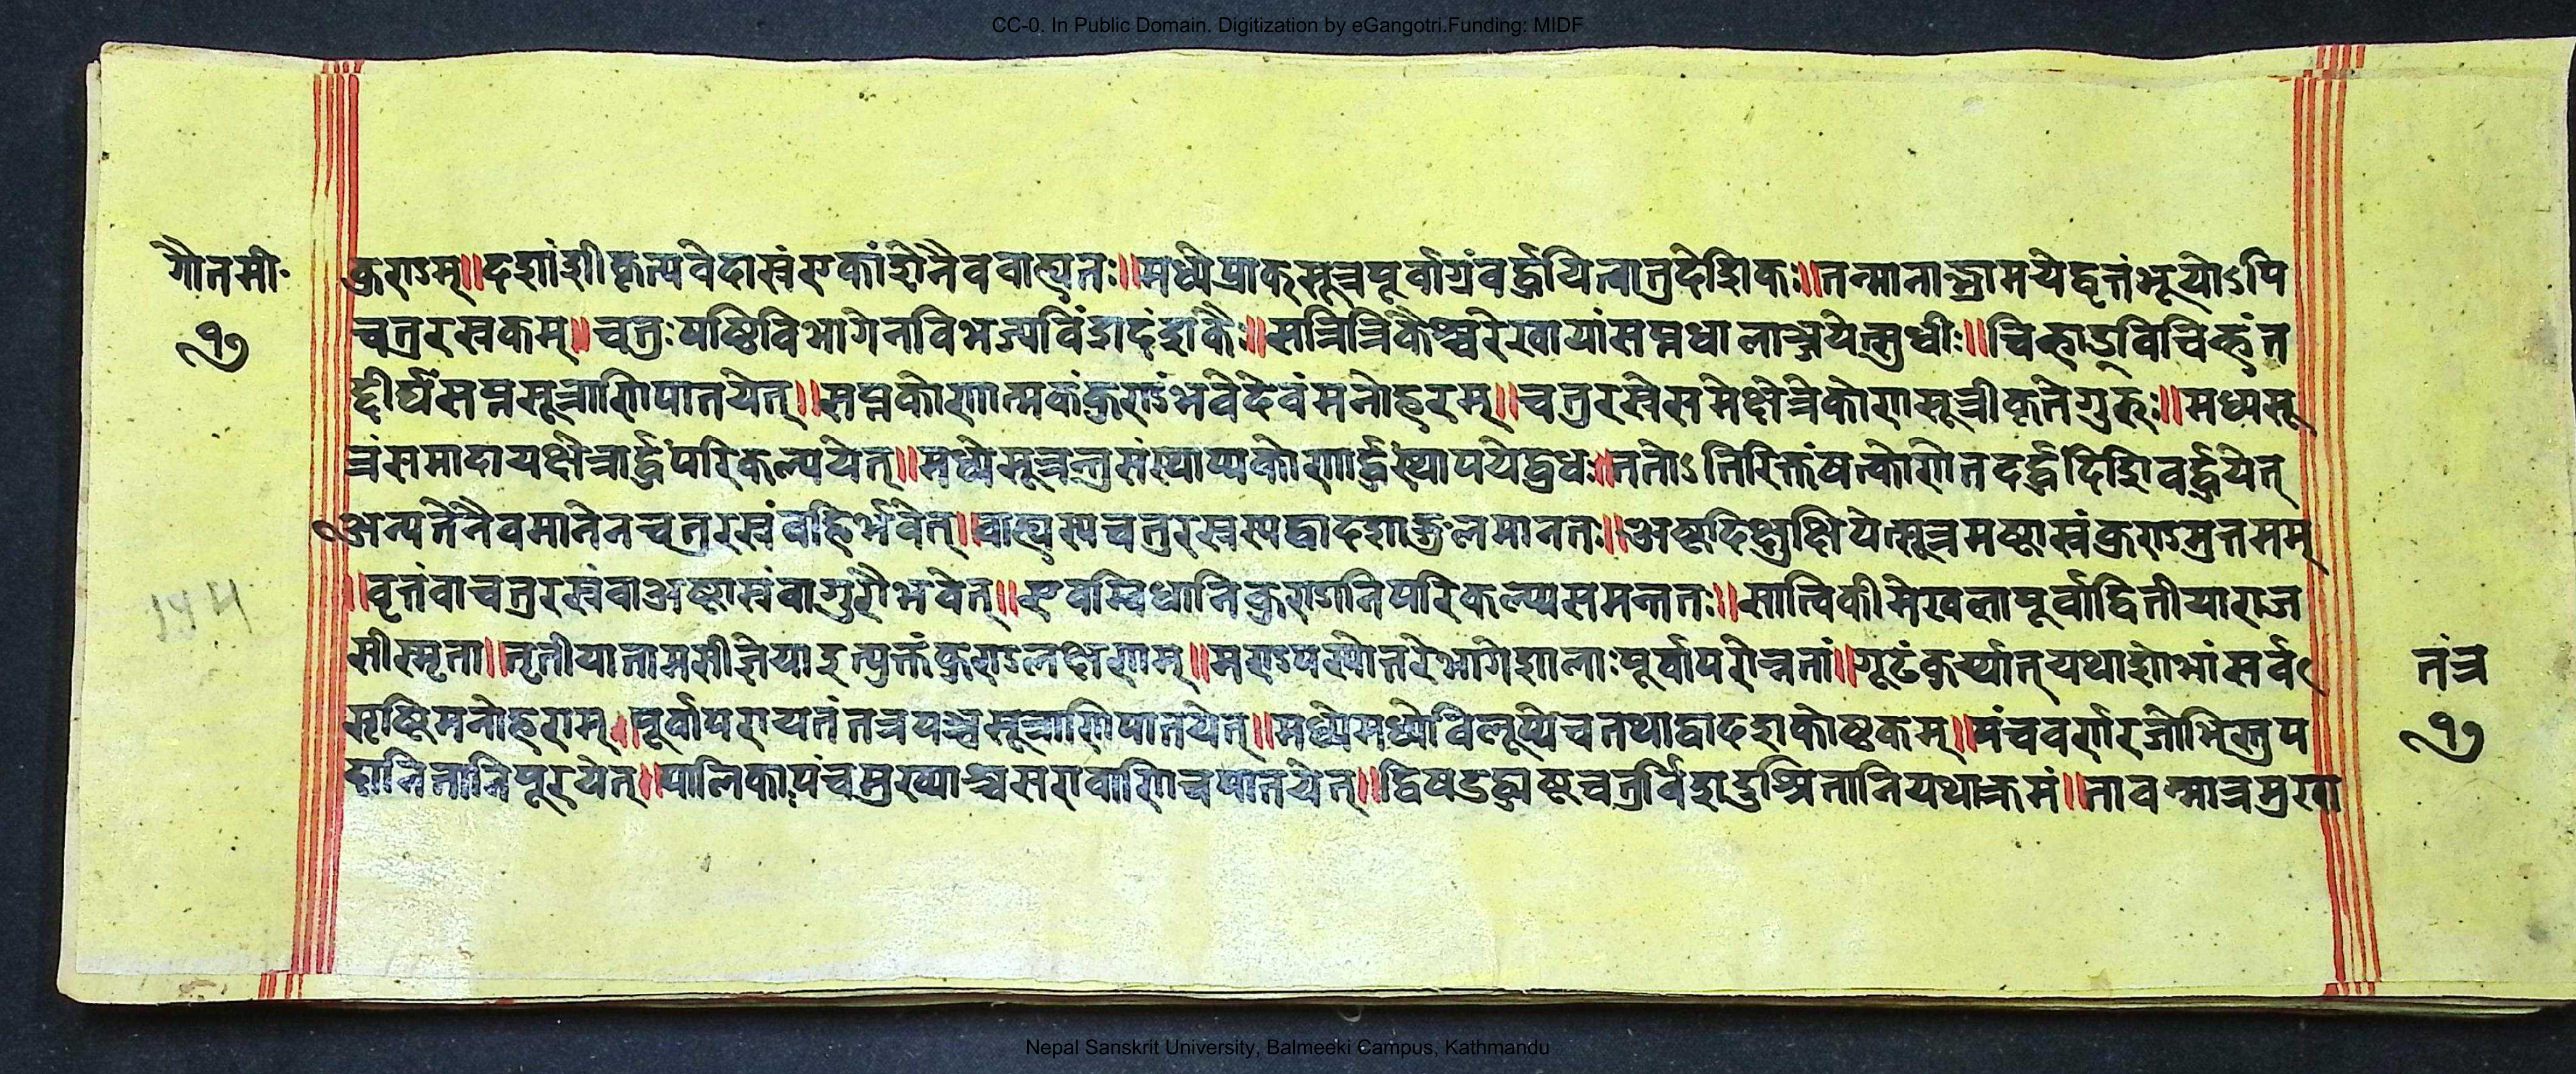 CC-0. In Public Domain. Digitization by eGangotri.Funding: MIDF
गौतमी॰
१७
कुराऽम्॥दशांशीकृत्यवेदास्रंएकांशेनैववाह्यतः॥मध्येप्राक्सूत्रपूर्वाग्रंवर्द्धयित्वातुदेशिकः॥तन्मानाद्भ्रामयेद्वृत्तंभूयोऽपि
चतुरस्रकम्॥चतुःषष्टिविभागेनविभज्यविंशदंशकैः॥सत्रित्रिकैश्चरेखायांसप्तधालाञ्छयेत्सुधीः॥चिह्नाद्विचिह्नंत
द्दीर्घंसप्तसूत्राणिपातयेत्॥सप्तकोणात्मकंकुण्डंभवेदेवंमनोहरम्॥चतुरस्रेसमेक्षेत्रेकोणसूत्रीकृतेगुरुः॥मध्यसू
त्रंसमादायक्षेत्रार्द्धंपरिकल्पयेत्॥मध्येसूत्रन्तुसंस्थाप्यकोणार्द्धंस्थापयेद्बुधः॥ततोऽतिरिक्तंयत्कोणेतदर्द्धंदिशिवर्द्धयेत्
अन्यतेनैवमानेनचतुरस्रंवहिर्भवेत्॥वाह्यस्यचतुरस्रस्यद्वादशाङ्गुलमानतः॥अष्टदिक्षुक्षिपेत्सूत्रमष्टास्रंकुण्डमुत्तमम्
॥वृत्तंवाचतुरस्रंवाअष्टास्रंवागुरौभवेत्॥एवम्विधानिकुण्डानिपरिकल्प्यसमन्ततः॥सात्विकीमेखलापूर्वाद्वितीयाराज
सीस्मृता॥तृतीयातामसीज्ञेयाइत्युक्तंकुण्डलक्षणम्॥मण्डपस्योत्तरेभागेशालाःपूर्वापरोन्नतां॥गूढंकुर्य्यात्यथाशोभांसर्व
सृष्टिमनोहराम्॥पूर्वापरायतंतत्रपञ्चसूत्राणिपातयेत्॥मध्येमध्येविलूप्येचतथाद्वादशकोष्ठकम्॥पंचवर्णरजोभिस्तुप
दानितानिपूरयेत्॥पालिकापंचमुख्याश्चसरावाणिचपातयेत्॥द्विषडष्टचतुर्विंशदुश्रितानियथाक्रमं॥तावन्मात्रमुखा
तंत्र
१७
Nepal Sanskrit University, Balmeeki Campus, Kathmandu